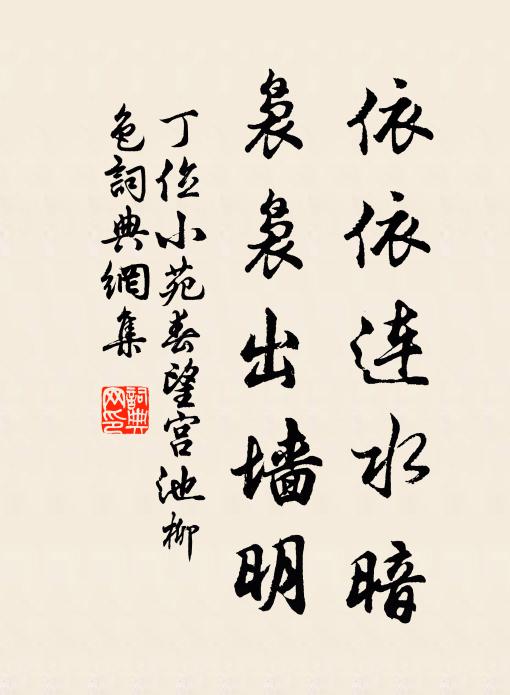 依依连水暗
袅袅出墙明
丁位小苑春望宫池柳
色詞典網集
詞典
网印